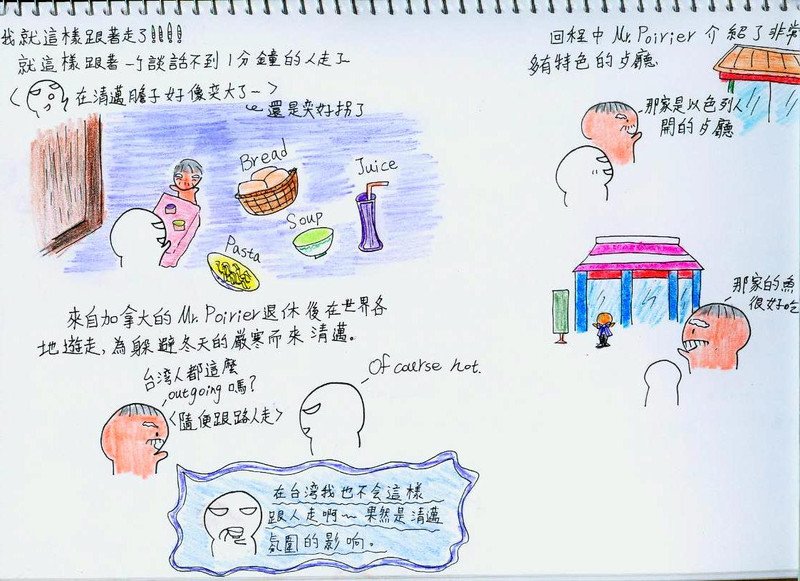 我就這樣跟著走了!!!!
就這樣跟著一个談話不到1分鐘的人走了
<在清邁膽子好像变大了~>
還是变好拐了
Bread
Juice
Soup
Pasta
來自加拿大的 Mr. Poirier退休後在世界各
地遊走,為躲避冬天的嚴寒而來清邁。
台湾人都這麼
outgoing嗎?
<隨便跟路人走>
Of course not.
在台湾我也不会這樣
跟人走啊~果然是清邁
氛圍的影响。
回程中 Mr. Poirier 介紹了非常
多有特色的歺廳
那家是以色列人
開的歺廳
那家的魚
很好吃